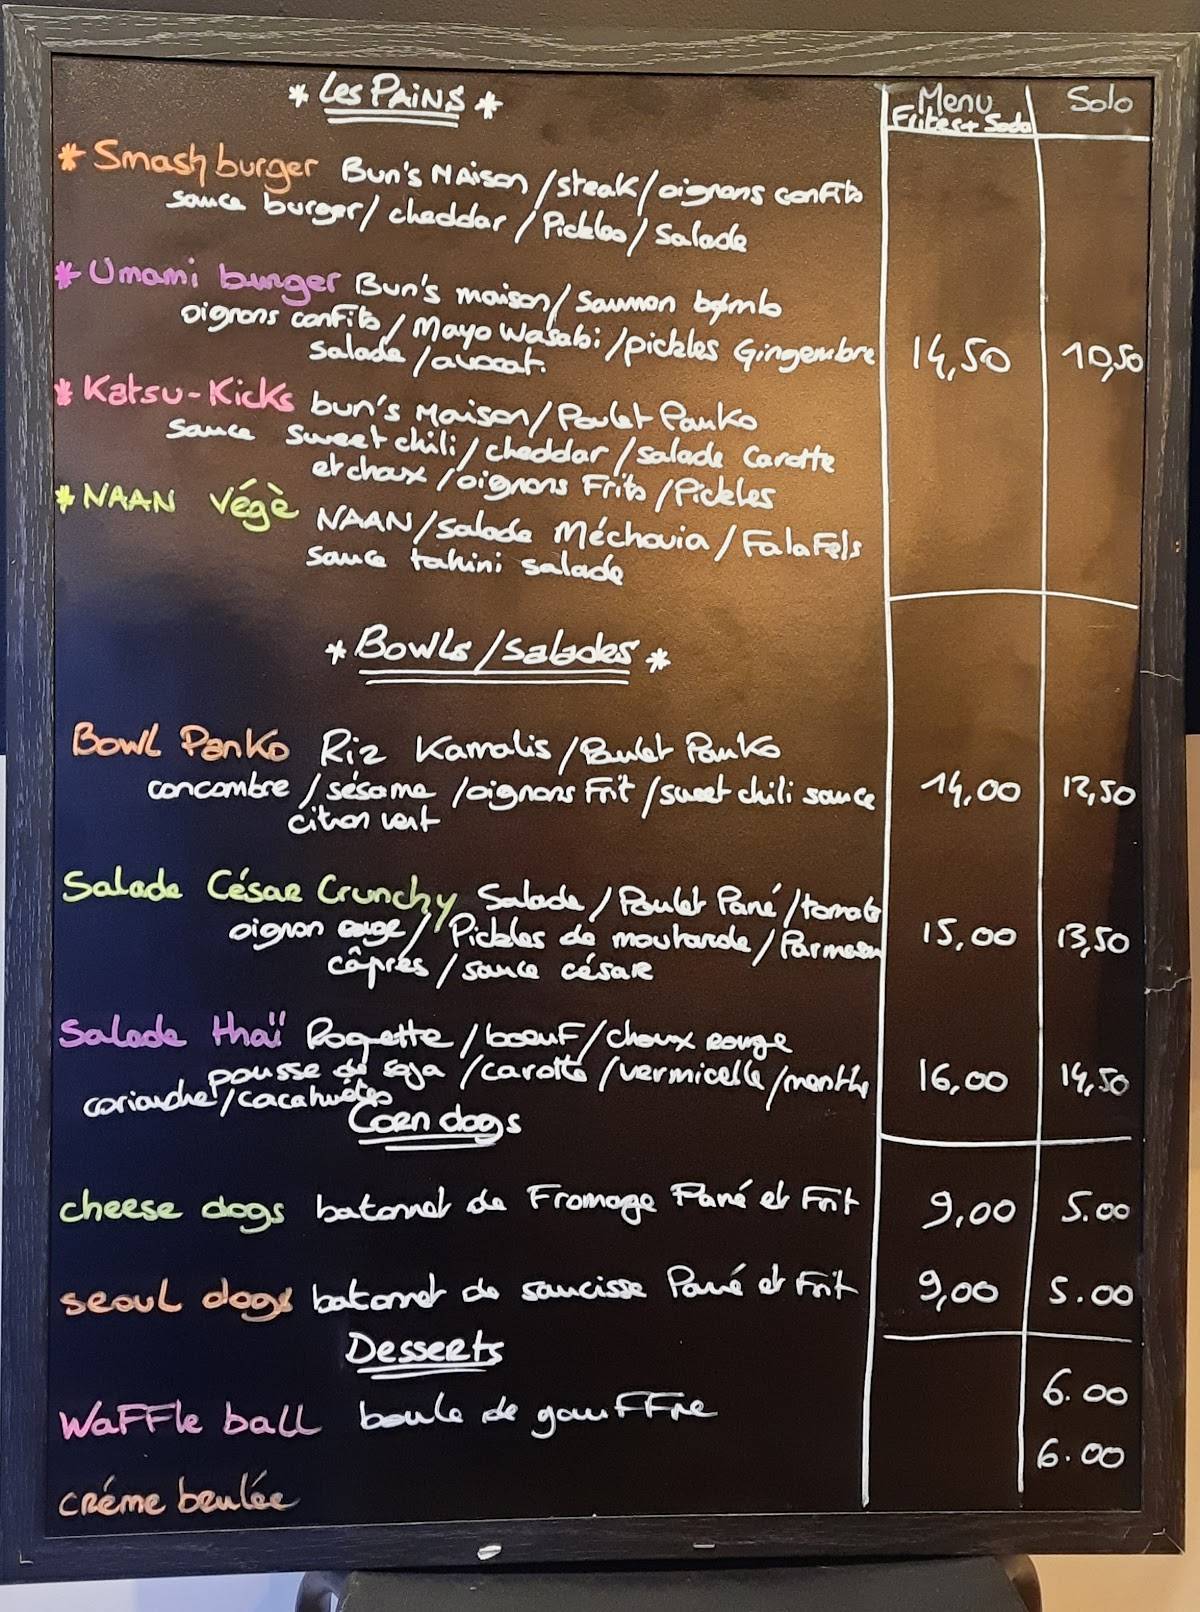 * Les PAINS *
Menu
Frites + Soda
Solo
* Smash burger Bun's MAison / steak / oignons confits
sauce burger / cheddar / Pickles / Salade
* Umami burger Bun's maison / Saumon
oignons confits / Mayo Wasabi / pickles Gingembre
salade / avocat.
14,50 10,50
* Katsu-Kicks bun's Maison / Poulet Panko
sauce sweet chili / cheddar / salade Carotte
et choux / oignons Frits / Pickles
* NAAN Végè NAAN / Salade Méchouia / FalaFels
sauce tahini salade
* Bowls / Salades *
Bowl Panko Riz Kamalis / Poulet Panko
concombre / sésame / oignons Frit / sweet chili sauce 14,00 12,50
citron vert
Salade César Crunchy Salade / Poulet Pané / tomate
oignon rouge / Pickles de moutarde / Parmesan 15,00 13,50
câprés / sauce césar
Salade thaï Roquette / boeuf / choux rouge
pousse de soja / carotte / vermicelle / menthe 16,00 14,50
coriandre / cacahuètes
Corn dogs
cheese dogs batonnet de Fromage Pané et Frit 9,00 5.00
seoul dogs batonnet de saucisse Pané et Frit 9,00 5.00
Desserts
6.00
WaFFle ball boule de gauFFre
6.00
créme brulée